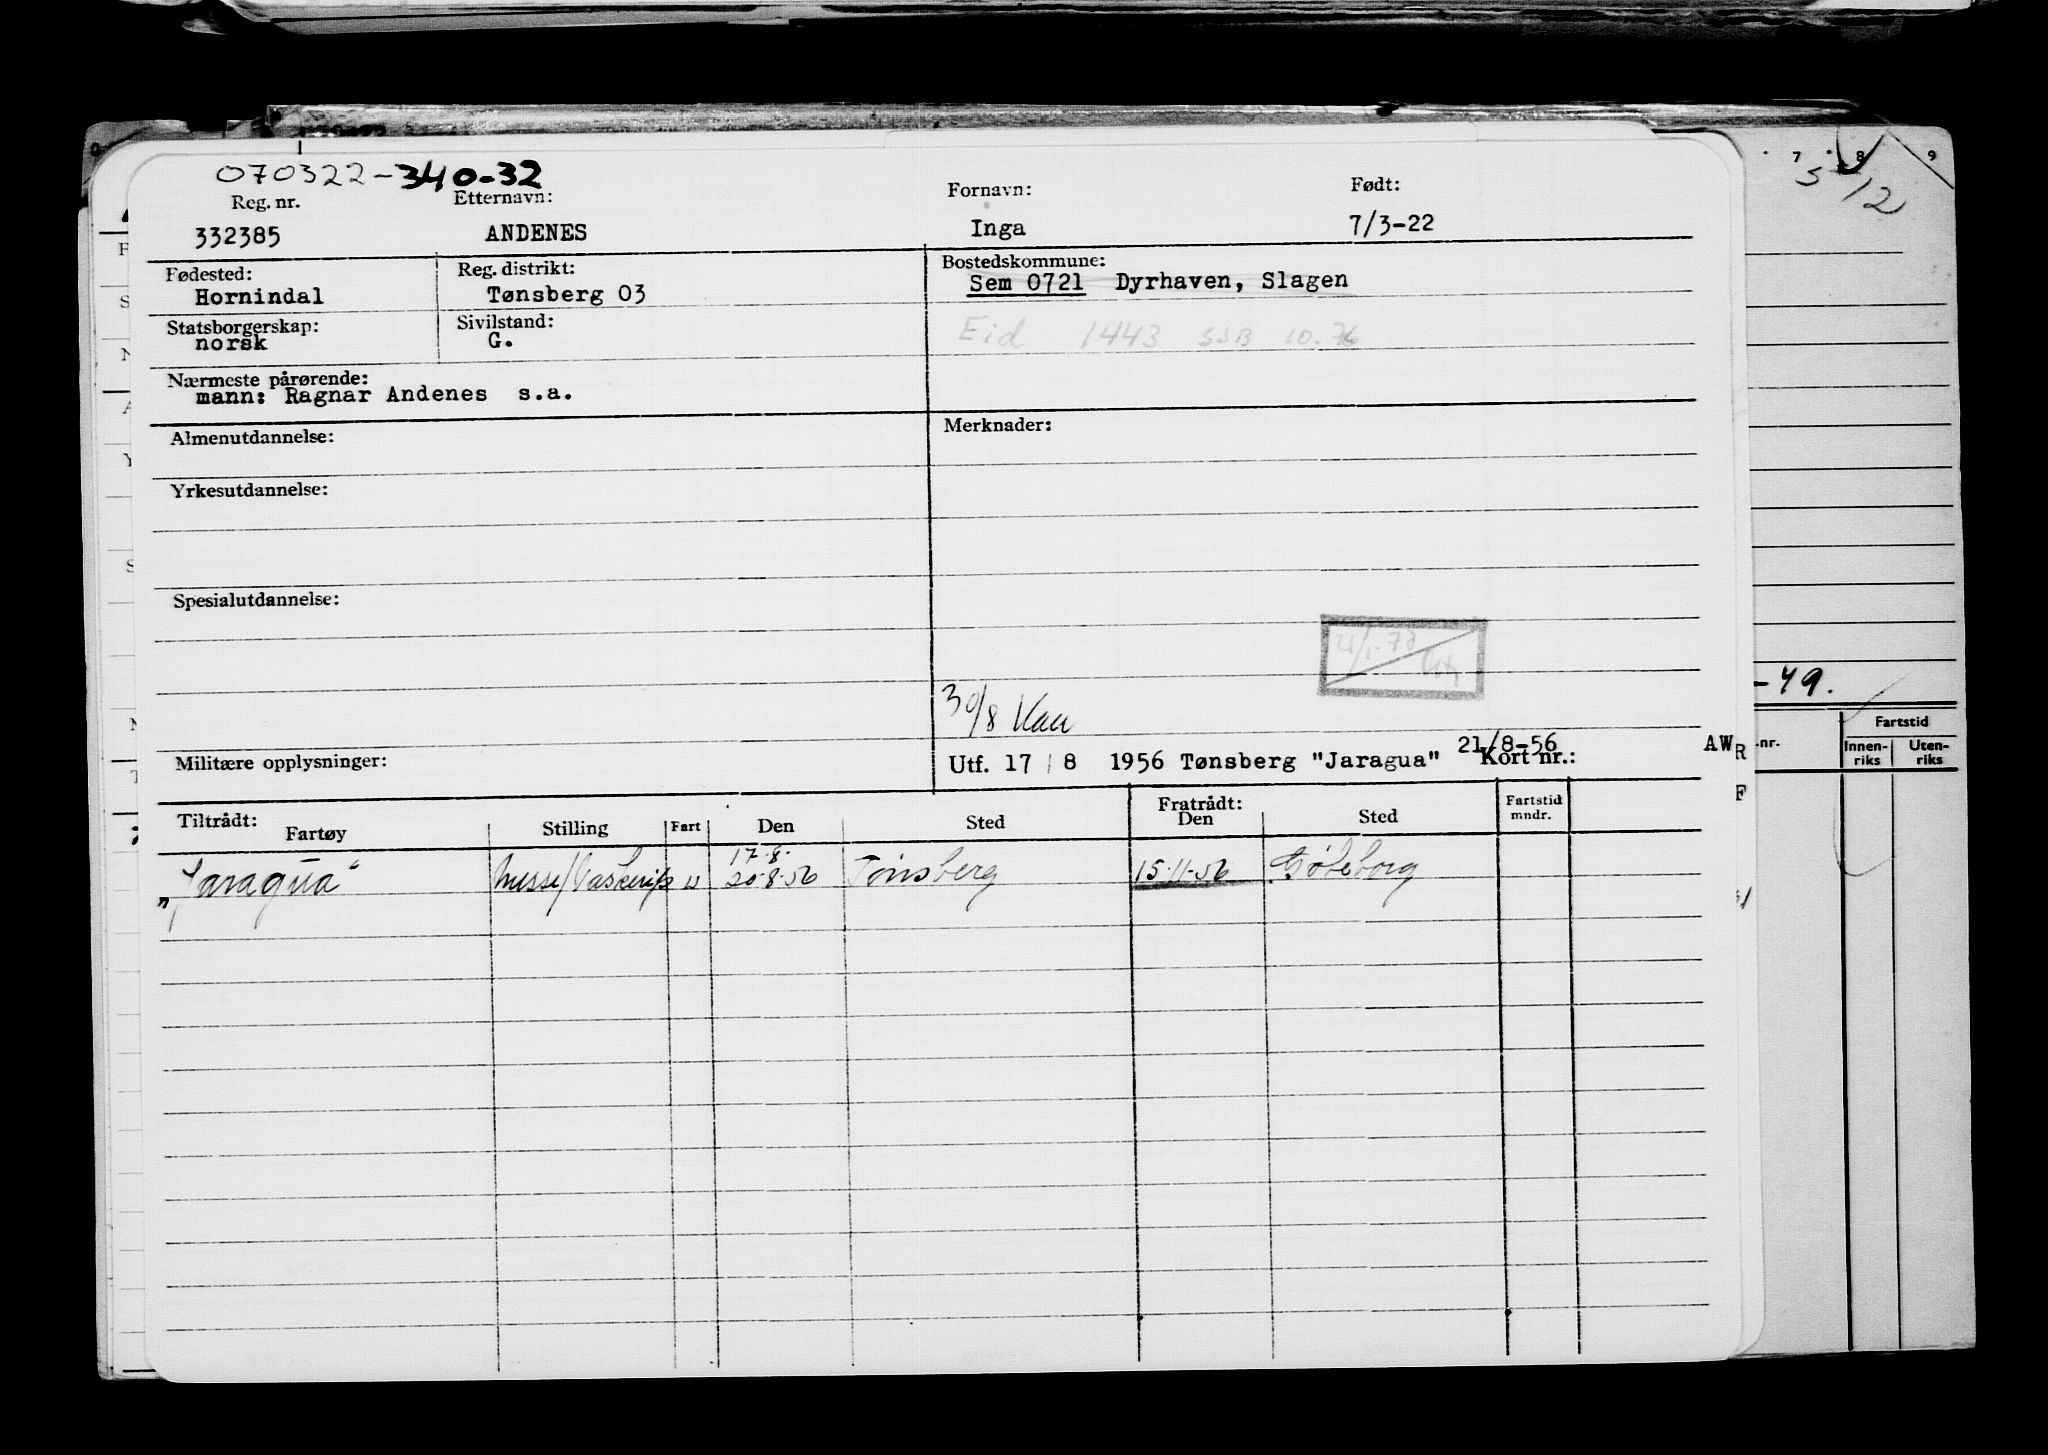 070322-340-32
Reg. nr. Etternavn: Fornavn: Født:
332385 ANDENES Inga 7/3-22
Fødested: Reg. distrikt: Bostedskommune:
Hornindal Tønsberg 03 Sem 0721 Dyrhaven, Slagen
Statsborgerskap: Sivilstand:
norsk G. Eid 1443 SSB 10.76
Nærmeste pårørende:
mann: Ragnar Andenes s.a.
Almenutdannelse: Merknader:
Yrkesutdannelse:
Spesialutdannelse:
30/8
Militære opplysninger: Utf. 17/8 1956 Tønsberg "Jaragua" 21/8-56 Kort nr.: AW
Tiltrådt: Fratrådt:
Fartøy Stilling Fart Den Sted Den Sted Fartstid mndr.
17.8.
"Jaragua" u 20.8.56 Tønsberg 15.11.56 Gøteborg
7 8 9
5 12
-49.
-nr. Fartstid
Innen-riks Uten-riks
R
F